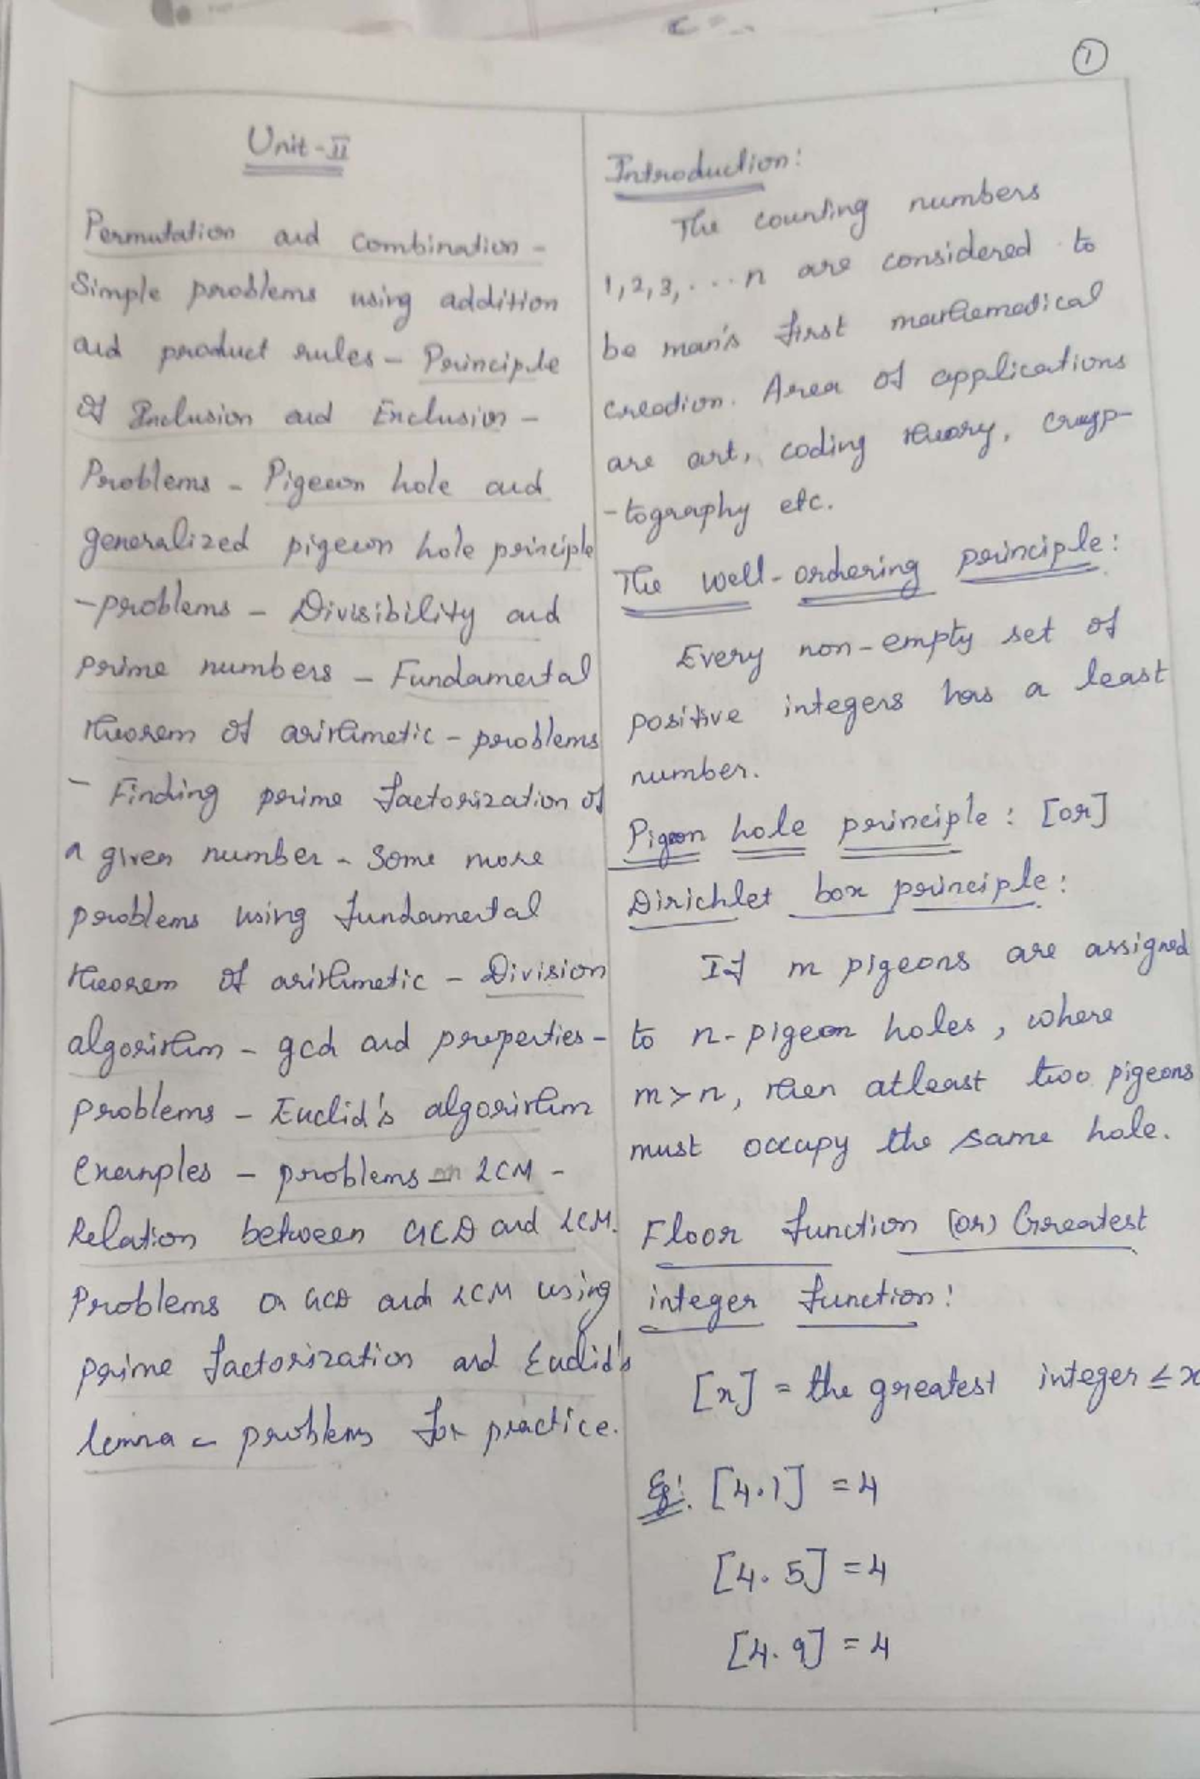 1
Unit-II
Permutation and combination-
Simple problems using addition
and product rules- Principle
Of Inclusion and Exclusion-
Problems- Pigeon hole and
generalized pigeon hole principle
-problems- Divisibility and
prime numbers- Fundamental
theorem Of arithmetic- problems
- Finding prime factorization of
a given number- some more
problems using fundamental
theorem Of arithmetic- Division
algorithm- gcd and properties-
problems- Euclid's algorithm
Examples- problems on LCM-
Relation between GCD and LCM.
Problems on GCD and LCM using
prime factorization and Euclid's
lemma- problems for practice.
Introduction:
The counting numbers
1,2,3,...n are considered to
be man's first mathematical
creation. Area of applications
are art, coding theory, cryp-
-tography etc.
The well-ordering principle:
Every non-empty set of
positive integers has a least
number.
Pigeon hole principle: [or]
Dirichlet box principle:
If m pigeons are assigned
to n-pigeon holes, where
m>n, then atleast two pigeons
must occupy the same hole.
Floor function (or) Greatest
integer function:
[x] = the greatest integer ≤ x
Eg: [4.1] = 4
[4.5] = 4
[4.9] = 4